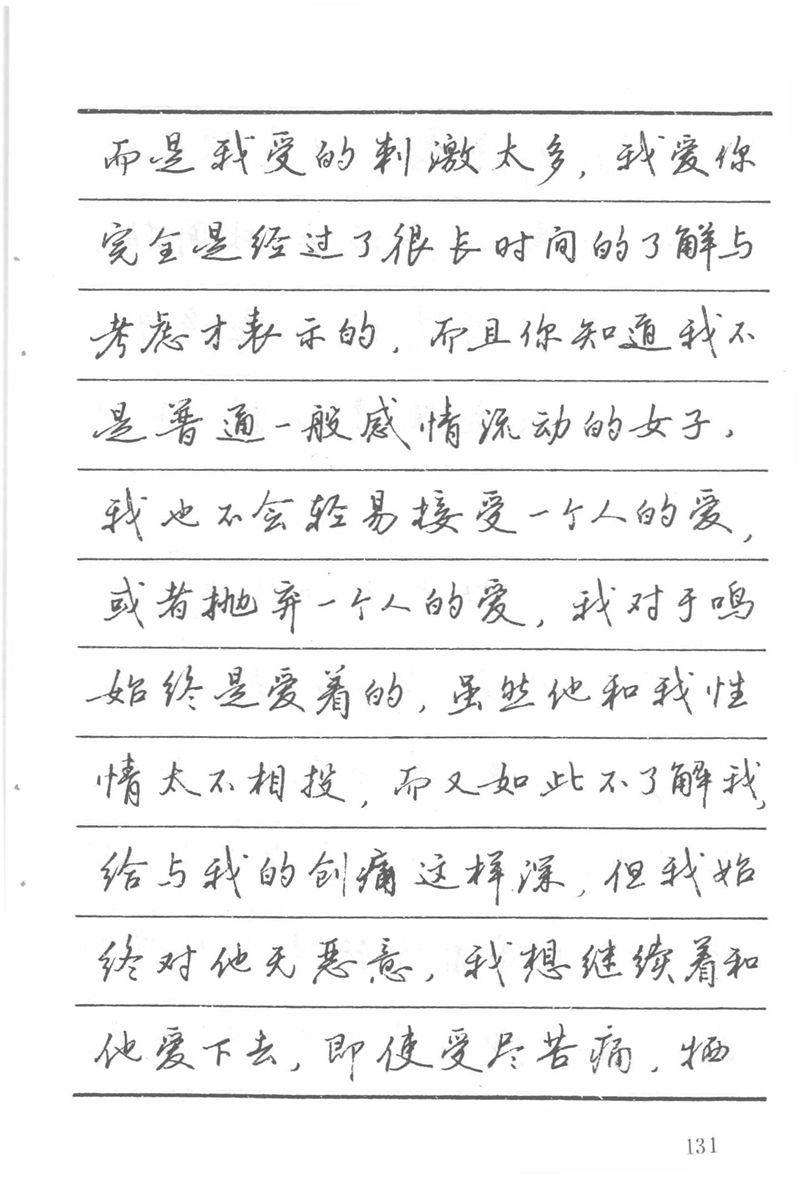 而是我受的刺激太多，我爱你
完全是经过了很长时间的了解与
考虑才表示的，而且你知道我不
是普通一般感情流动的女子，
我也不会轻易接受一个人的爱，
或者抛弃一个人的爱，我对于鸣
始终是爱着的，虽然他和我性
情太不相投，而又如此不了解我，
给与我的创痛这样深，但我始
终对他无恶意，我想继续着和
他爱下去，即使受尽苦痛，牺
131